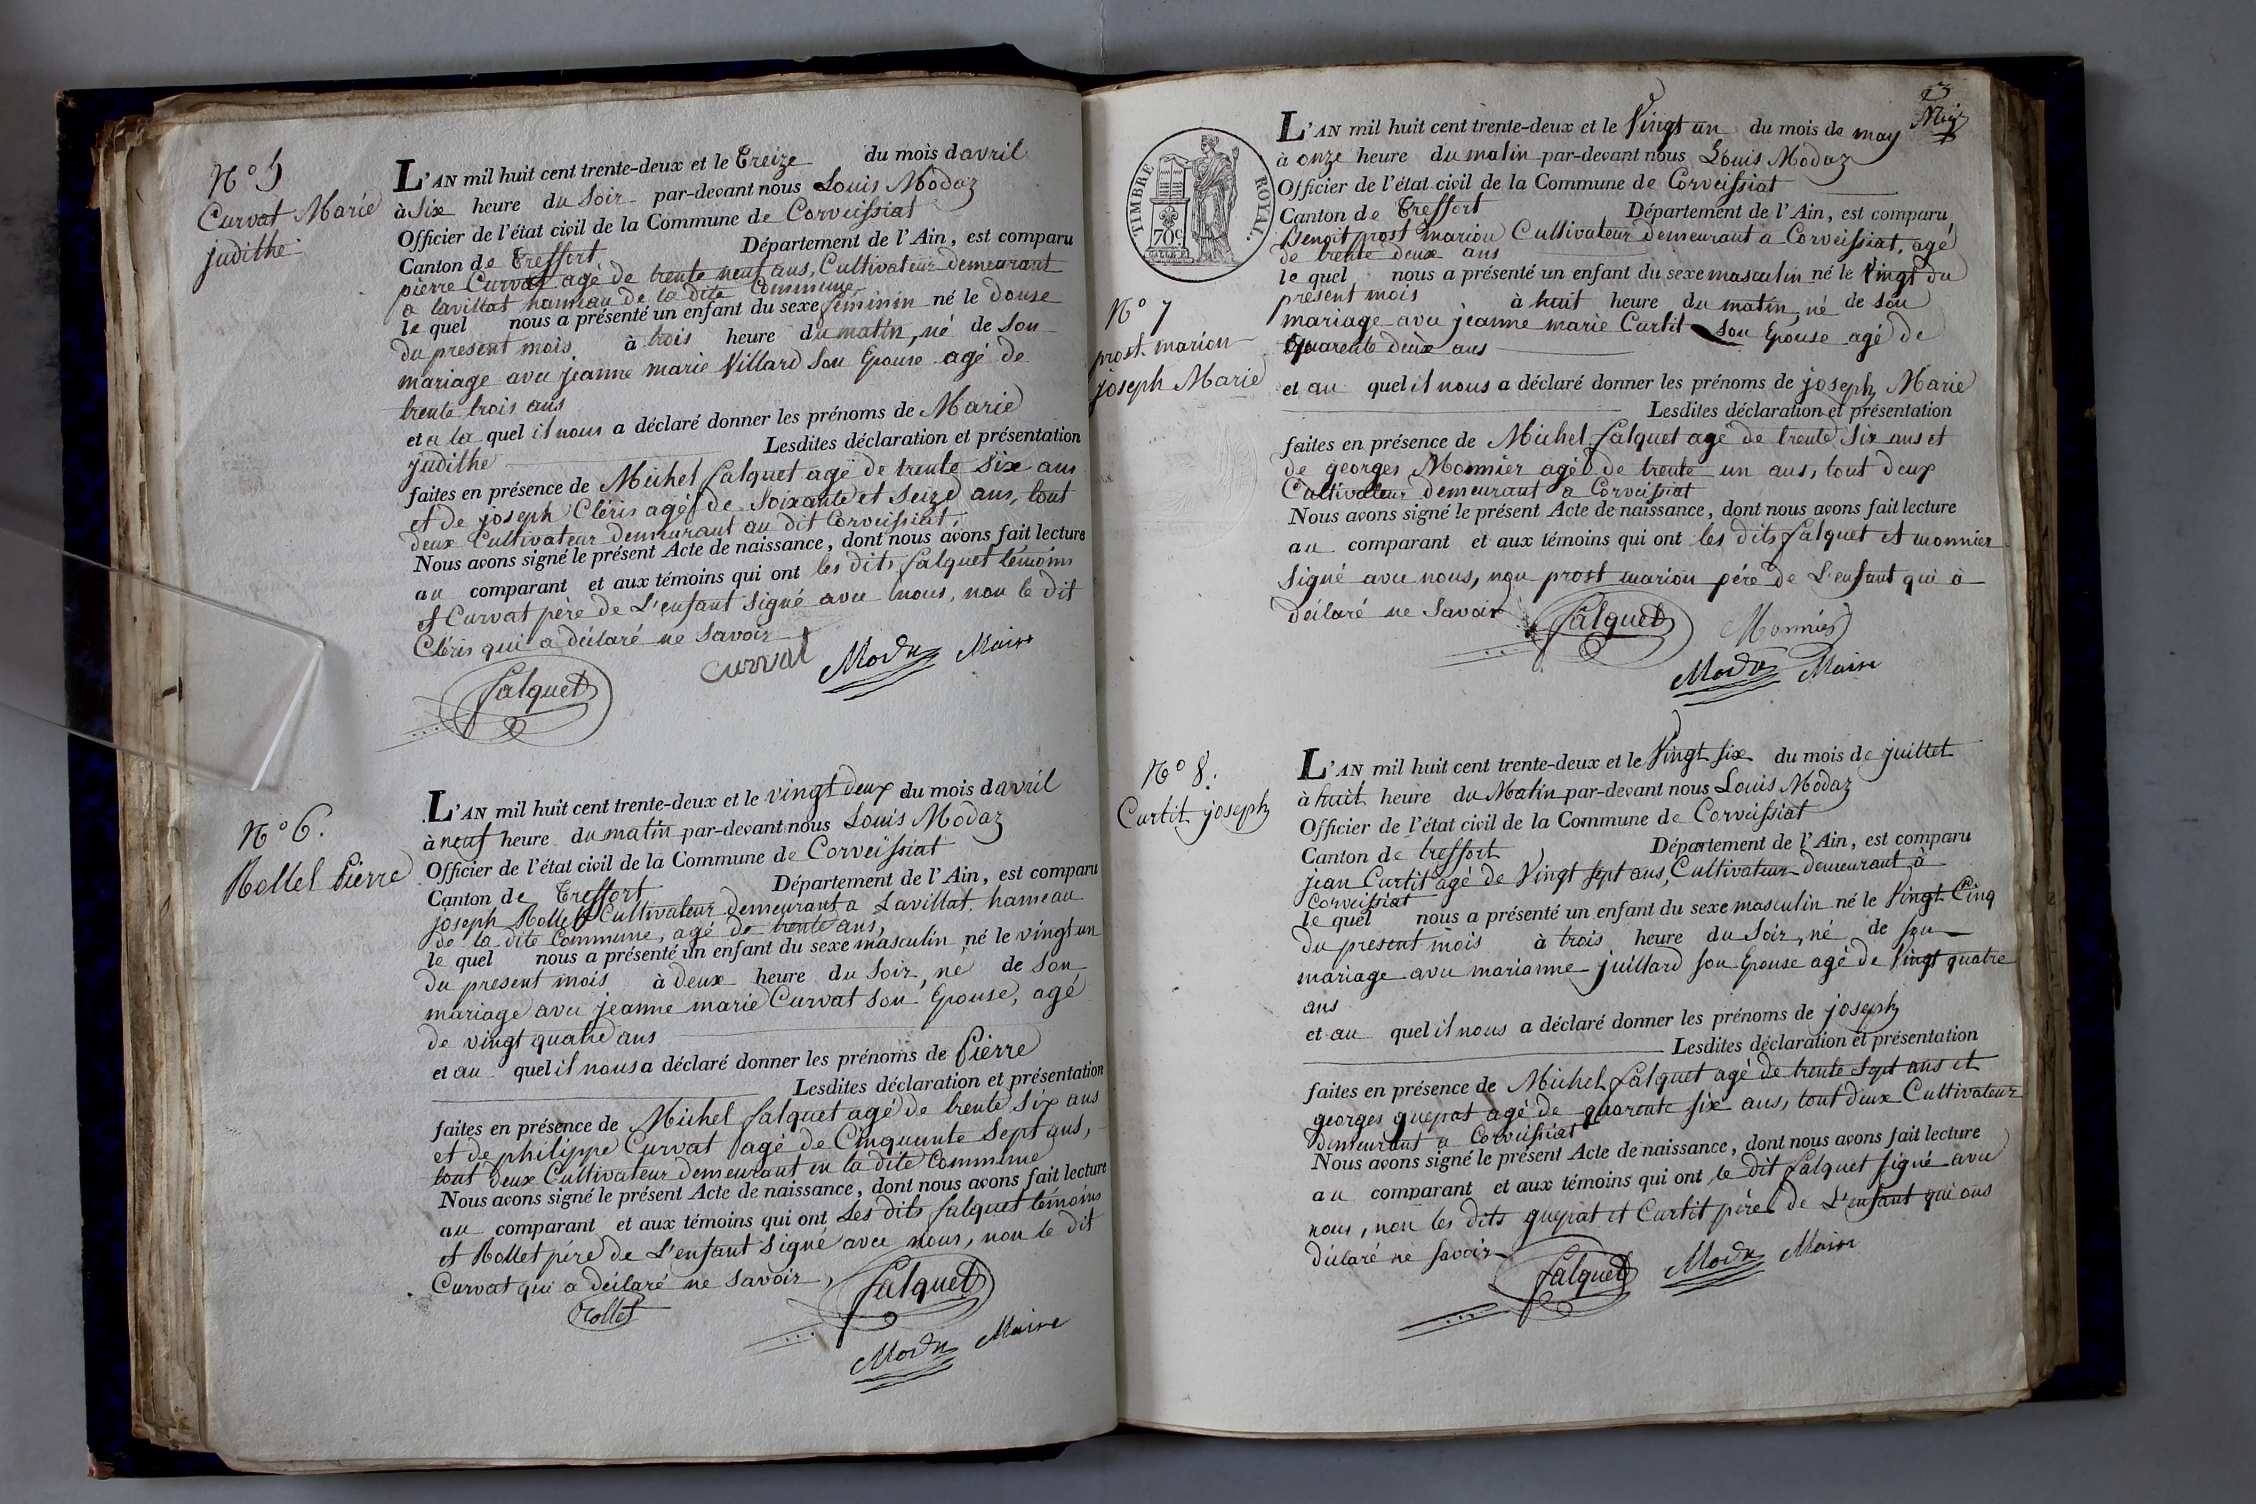 N° 5
Curvat Marie
judithe
L'AN mil huit cent trente-deux et le Treize du mois d avril
à Six heure du Soir par-devant nous Louis Modaz
Officier de l'état civil de la Commune de Corveissiat
Canton de Treffort Département de l'Ain, est comparu
pierre Curvat agé de trente neuf ans, Cultivateur demeurant
a lavillat hameau de la dite Commune
le quel nous a présenté un enfant du sexe féminin né le douse
du present mois à trois heure du matin, né de Son
mariage avec jeanne marie Villard Son Epouse agé de
trente trois ans
et a la quel il nous a déclaré donner les prénoms de Marie
judithe Lesdites déclaration et présentation
faites en présence de Michel falquet agé de trente Six ans
et de joseph Cléris agé de Soixante et Seize ans, tout
deux Cultivateur demeurant au dit Corveissiat,
Nous avons signé le présent Acte de naissance, dont nous avons fait lecture
au comparant et aux témoins qui ont les dits falquet témoins
et Curvat père de L'enfant Signé avec nous, non le dit
Cléris qui a déclaré ne Savoir
curvat Modaz Maire
falquet
N° 6.
Rollet Pierre
L'AN mil huit cent trente-deux et le vingt deux du mois d avril
à neuf heure du matin par-devant nous Louis Modaz
Officier de l'état civil de la Commune de Corveissiat
Canton de Treffort Département de l'Ain, est comparu
joseph Rollet Cultivateur demeurant a Lavillat hameau
de la dite Commune, agé de trente ans,
le quel nous a présenté un enfant du sexe masculin né le vingt un
du present mois à deux heure du Soir, né de Son
mariage avec jeanne marie Curvat Son Epouse, agé
de vingt quatre ans
et au quel il nous a déclaré donner les prénoms de Pierre
Lesdites déclaration et présentation
faites en présence de Michel falquet agé de trente Six ans
et de philippe Curvat agé de Cinquante Sept ans,
tout deux Cultivateur demeurant en la dite Commune
Nous avons signé le présent Acte de naissance, dont nous avons fait lecture
au comparant et aux témoins qui ont Les dits falquet témoins
et Rollet père de L'enfant Signé avec nous, non le dit
Curvat qui a déclaré ne Savoir,
Rollet falquet
Modaz Maire
3
TIMBRE ROYAL.
70c
N° 7
prost marion
joseph Marie
L'AN mil huit cent trente-deux et le Vingt un du mois de may
à onze heure du matin par-devant nous Louis Modaz
Officier de l'état civil de la Commune de Corveissiat
Canton de Treffort Département de l'Ain, est comparu
Benoit prost marion Cultivateur demeurant a Corveissiat, agé
de trente deux ans
le quel nous a présenté un enfant du sexe masculin né le Vingt du
présent mois à huit heure du matin, né de Son
mariage avec jeanne marie Curtit Son Epouse agé de
Quarente deux ans
et au quel il nous a déclaré donner les prénoms de joseph Marie
Lesdites déclaration et présentation
faites en présence de Michel falquet agé de trente Six ans et
de georges Monnier agé de trente un ans, tout deux
Cultivateur demeurant a Corveissiat
Nous avons signé le présent Acte de naissance, dont nous avons fait lecture
au comparant et aux témoins qui ont les dits falquet et monnier
Signé avec nous, non prost marion père de L'enfant qui a
déclaré ne Savoir
falquet Monnier
Modaz Maire
N° 8.
Curtit joseph
L'AN mil huit cent trente-deux et le Vingt Six du mois de juillet
à huit heure du Matin par-devant nous Louis Modaz
Officier de l'état civil de la Commune de Corveissiat
Canton de treffort Département de l'Ain, est comparu
jean Curtit agé de Vingt Sept ans, Cultivateur demeurant à
Corveissiat
le quel nous a présenté un enfant du sexe masculin né le Vingt Cinq
du present mois à trois heure du Soir, né de Son
mariage avec marianne juillard Son Epouse agé de Vingt quatre
ans
et au quel il nous a déclaré donner les prénoms de joseph
Lesdites déclaration et présentation
faites en présence de Michel falquet agé de trente Sept ans et
georges guepat agé de quarente Six ans, tout deux Cultivateur
demeurant a Corveissiat
Nous avons signé le présent Acte de naissance, dont nous avons fait lecture
au comparant et aux témoins qui ont le dit falquet Signé avec
nous, non les dits guepat et Curtit père de L'enfant qui ons
déclaré ne Savoir
falquet Modaz Maire